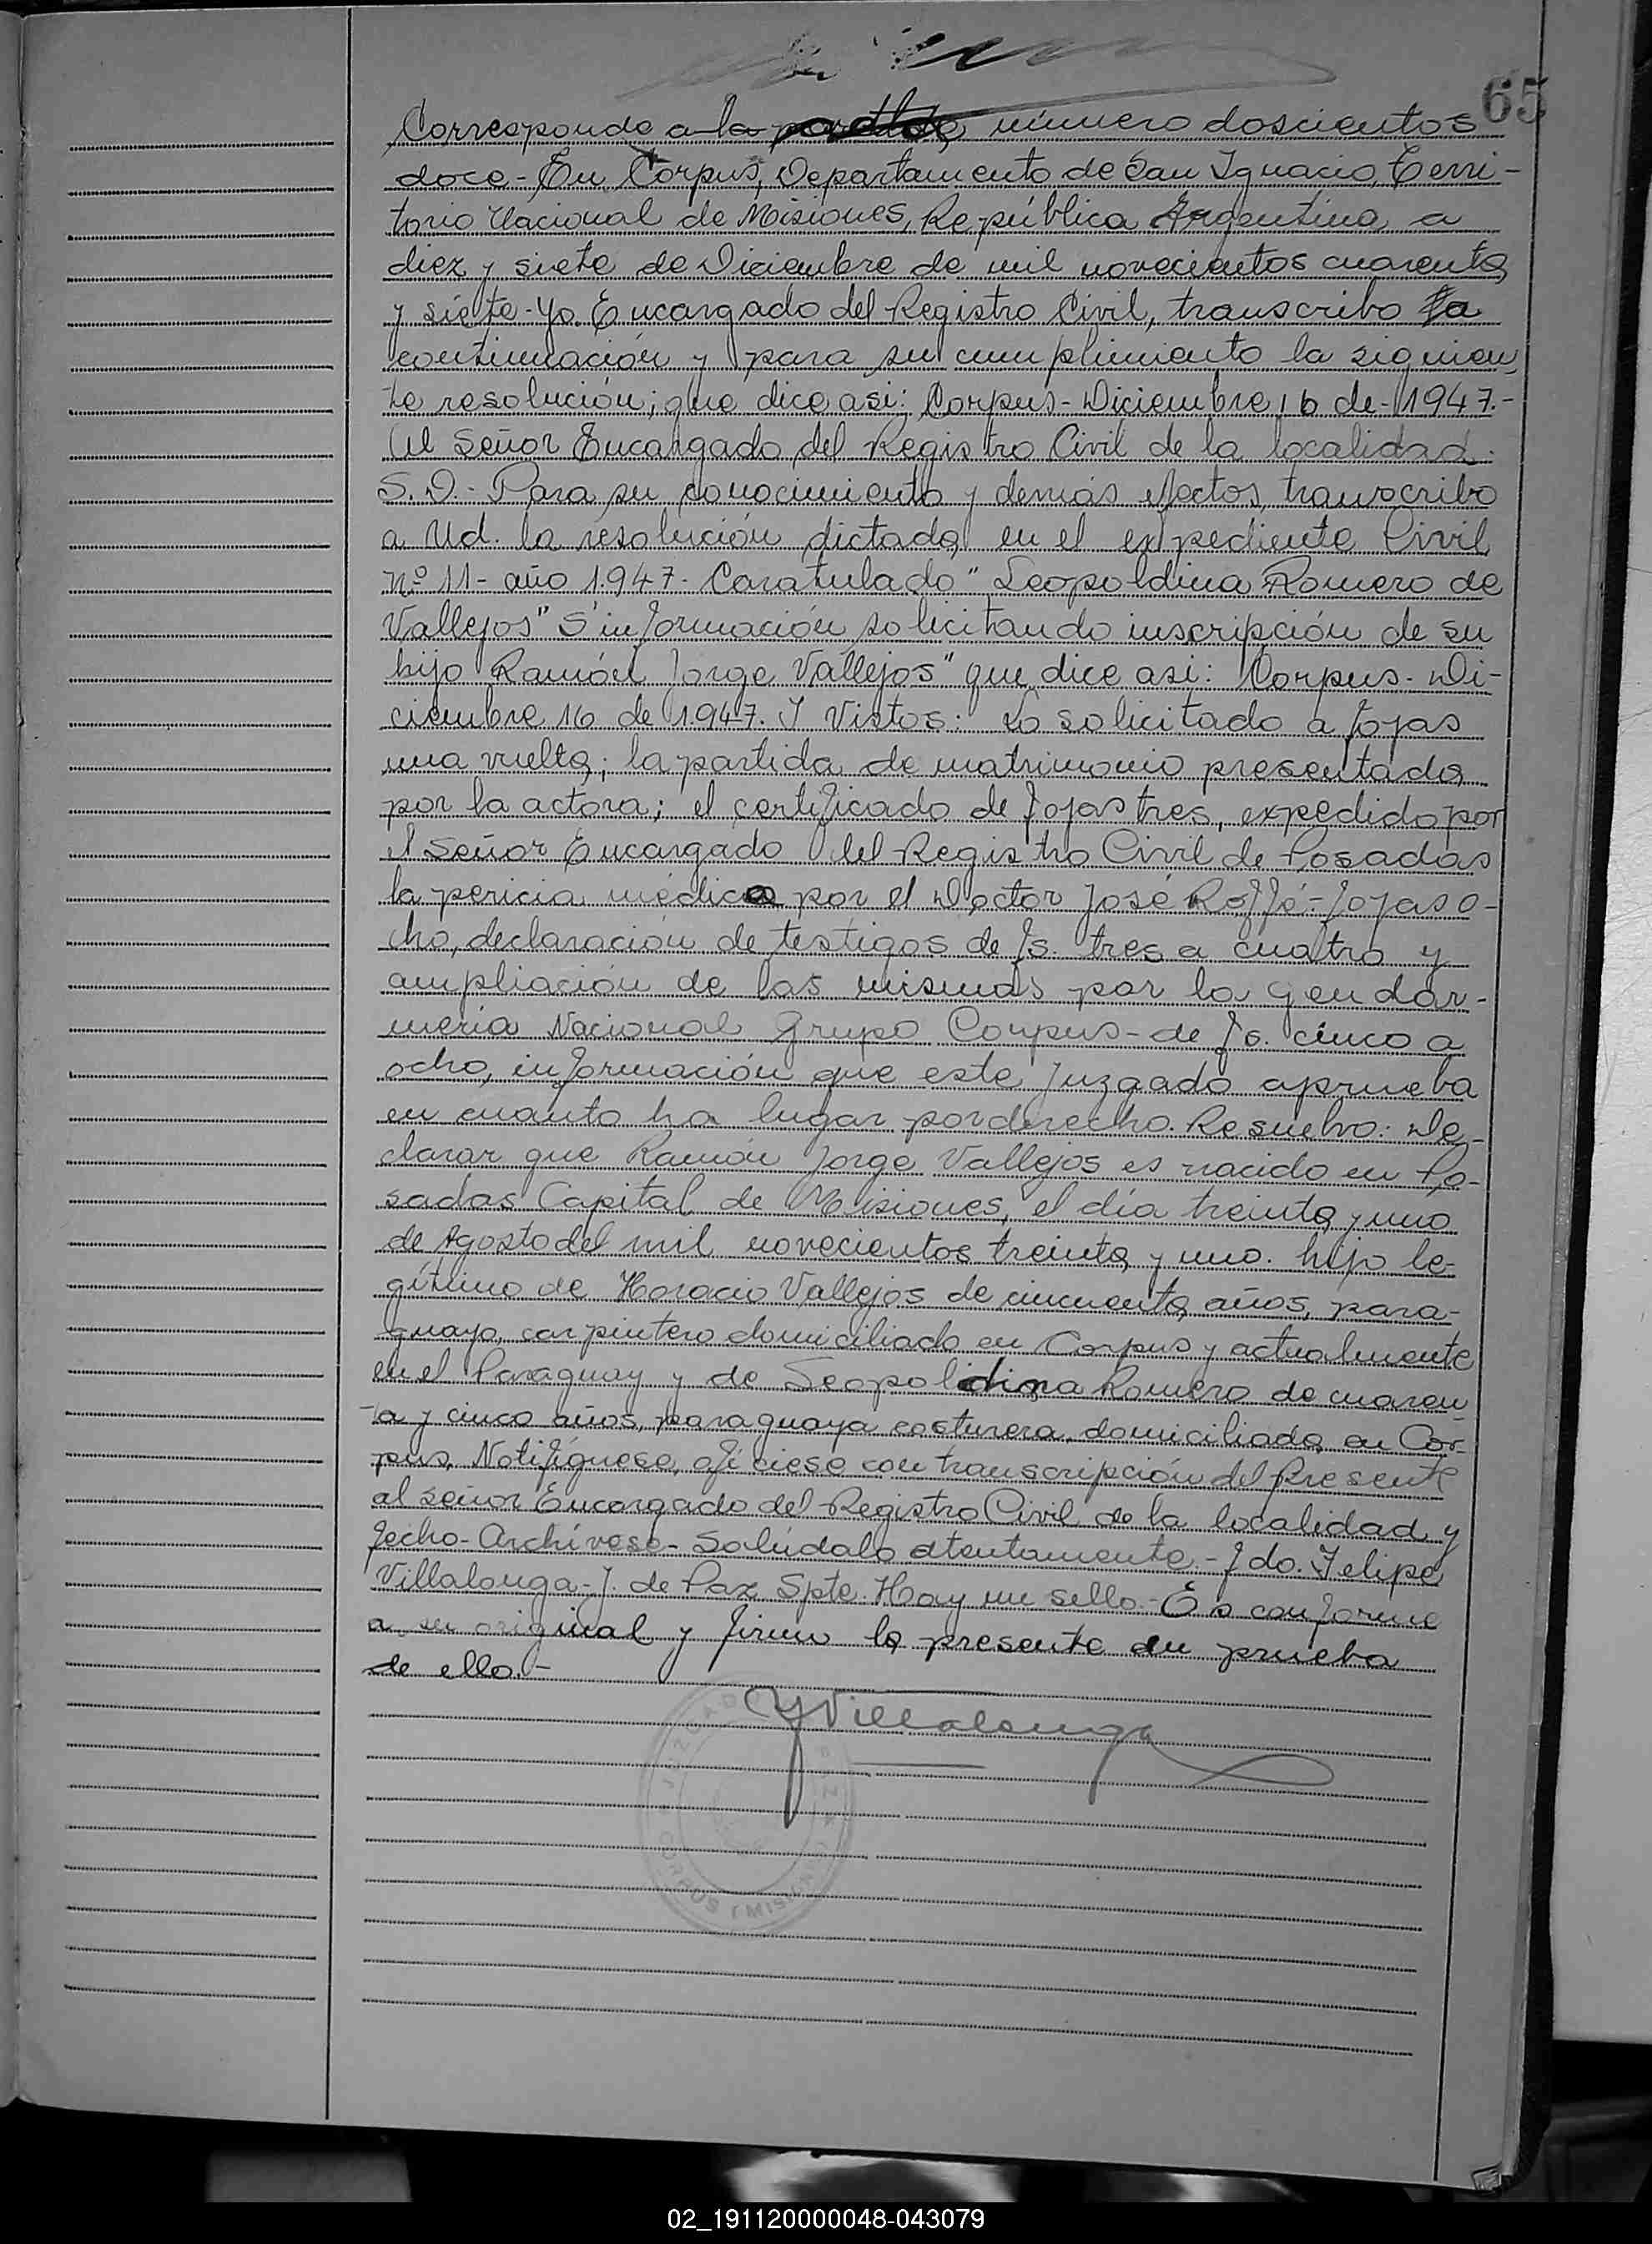 65
Corresponde a la partida número doscientos
doce - En Corpus, Departamento de San Ignacio, Terri-
torio Nacional de Misiones, República Argentina a
diez y siete de Diciembre de mil novecientos cuarenta
y siete - Yo Encargado del Registro Civil, transcribo a
continuación y para su cumplimiento la siguien
te resolución; que dice asi: Corpus - Diciembre 16 de - 1947.-
Al Señor Encargado del Registro Civil de la localidad.
S.D. - Para su conocimiento y demás efectos, transcribo
a Ud. la resolución dictada en el expediente Civil
Nº 11 - año 1.947 - Caratulado "Leopoldina Romero de
Vallejos" S'información solicitando inscripción de su
hijo Ramón Jorge Vallejos" que dice asi: Corpus - Di-
ciembre 16 de 1.947. Y Vistos: Lo solicitado a fojas
una vuelta; la partida de matrimonio presentada
por la actora; el certificado de fojas tres, expedido por
el Señor Encargado del Registro Civil de Posadas
la pericia médica por el Doctor José Roffé - fojas o-
cho, declaración de testigos de fs. tres a cuatro y
ampliación de las mismas por la Gendar-
mería Nacional Grupo Corpus - de fs. cinco a
ocho, información que este Juzgado aprueba
en cuanto ha lugar por derecho. Resuelvo: De-
clarar que Ramón Jorge Vallejos es nacido en Po-
sadas Capital de Misiones, el día treinta y uno
de Agosto del mil novecientos treinta y uno. hijo le-
gítimo de Horacio Vallejos de cincuenta años, para-
guayo, carpintero domiciliado en Corpus y actualmente
en el Paraguay y de Leopoldina Romero de cuaren
ta y cinco años, paraguaya costurera, domiciliada en Cor-
pus. Notifíquese, ofíciese con transcripción del presente
al señor Encargado del Registro Civil de la localidad y
fecho - Archívese - Salúdalo atentamente - fdo. Felipe
Villalonga - J. de Paz Spte. Hay un sello - Es conforme
a su original y firmo la presente en prueba
de ello. -
FVillalonga
JUZGADO CORPUS (MISIONES)
02_191120000048-043079